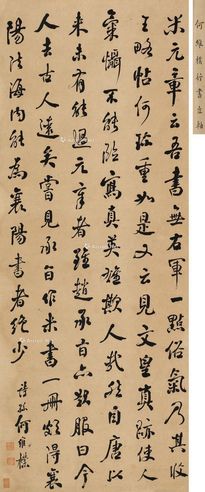 何維樸行書立軸
米元章云吾書無右軍一點俗氣乃其收
王略帖何珍重如是又云見文皇真跡使人
氣懾不能臨寫真英雄欺人哉然自唐以
來未有能過元章者雖趙承旨亦歎服曰今
人去古人遠矣嘗見承旨作米書一冊頗得襄
陽法海內能為襄陽書者絕少
詩孫何維樸